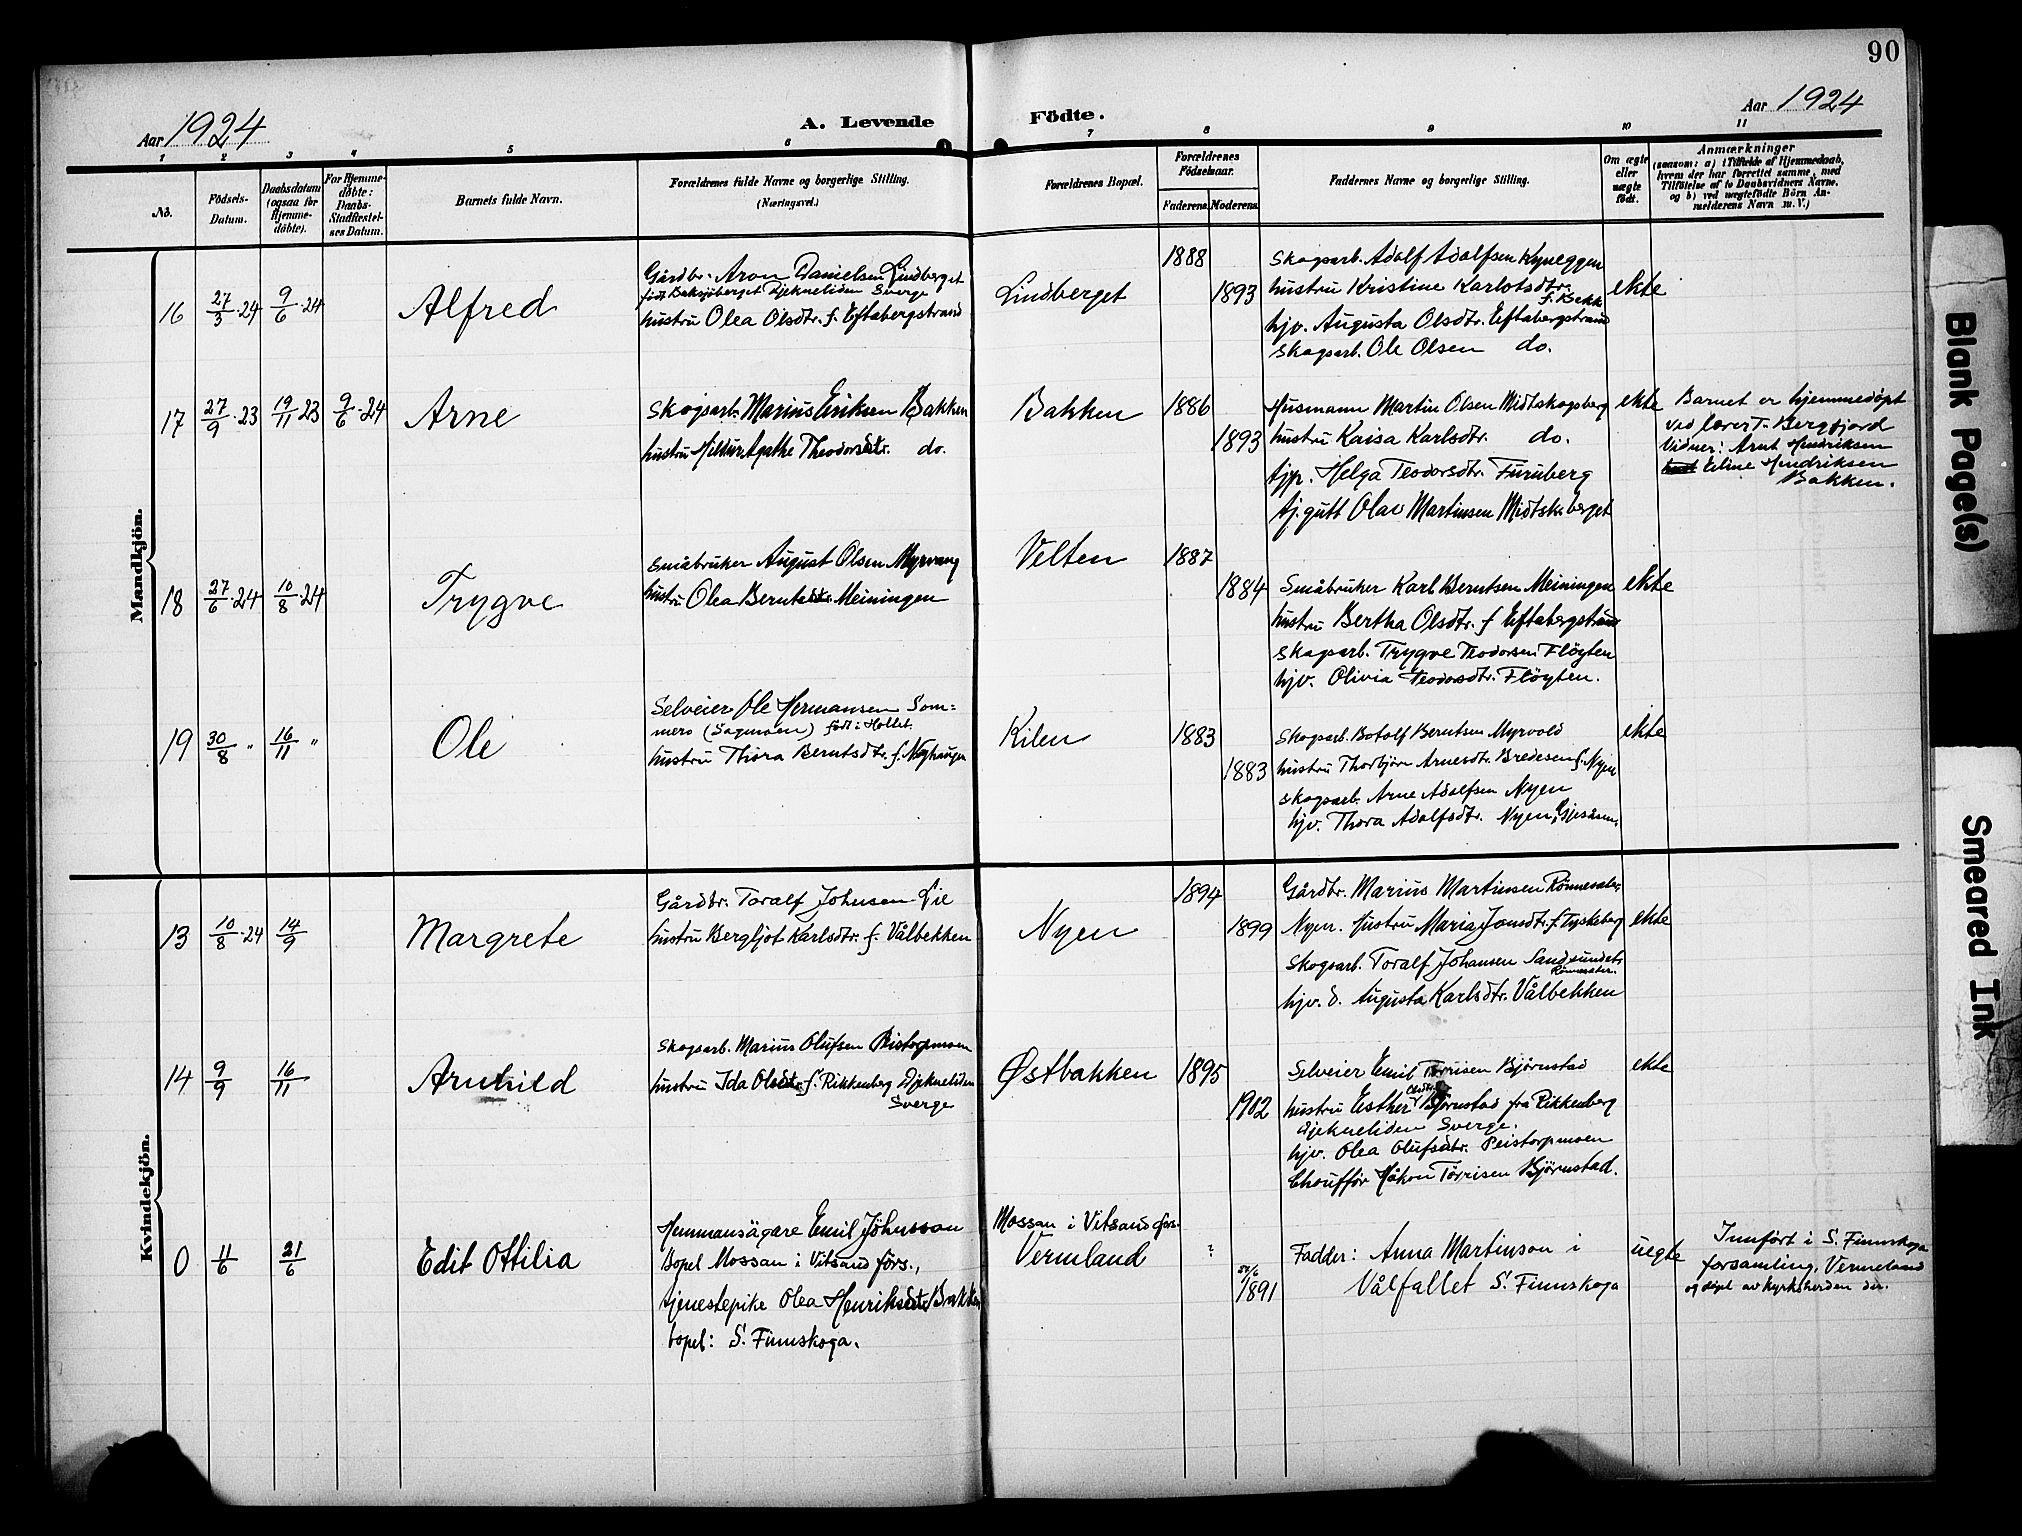 90
Aar 1924
A. Levende Födte.
Aar 1924
1 2 3 4 5 6 7 8 9 10 11
No.
Födsels-
Datum.
Daabsdatum
(ogsaa for
Hjemme-
döbte).
For Hjemme-
döbte:
Daabs-
Stadfæstel-
ses Datum.
Barnets fulde Navn.
Forældrenes fulde Navne og borgerlige Stilling.
(Næringsvei.)
Forældrenes Bopæl.
Forældrenes
Födselsaar.
Faderens. Moderens.
Faddernes Navne og borgerlige Stilling.
Om ægte
eller
uægte
født.
Anmærkninger
(saasom: a) i Tilfælde af Hjemmedaab,
hvem der har forrettet samme, med
Tilföielse af to Daabsvidners Navne,
og b) ved uægtefödte Börn An-
melderens Navn m. V.)
Mandkjön.
16 27/3 . 24 9/6 . 24 Alfred
Gårdbr. Aron Danielsen Lindberget
født Baksjöberget Djekneliden Sverge
hustru Olea Olsdtr. f. Eftabergstrand
Lindberget 1888 1893
Skogsarb. Adolf Adolfsen Kyneggen
hustru Kristine Karlotsdtr.
f. Bekk
hjv. Augusta Olsdtr. Eftabergstrand
Skogsarb. Ole Olsen do.
ekte
17 27/9 . 23 19/11 23 9/6 . 24 Arne
Skogsarb. Marius Eriksen Bakken
hustru Agathe Theodorsdtr. do.
Bakken 1886 1893
Husmann Martin Olsen Midtskogsberg
hustru Kaisa Karlsdtr. do.
tjp. Helga Teodorsdtr. Furuberg
tj.gutt Olav Martinsen Midtsk.berget
ekte
Barnet er hjemmedøpt
ved lærer T. Bergfjord
Vidner: Arnt Hendriksen
Eline Hendriksen
Bakken.
18 27/6 . 24 10/8 . 24 Trygve
Småbruker August Olsen Myrvang
hustru Olea Berntsdtr. Meiningen
Velten 1887 1884
Småbruker Karl Berntsen Meiningen
hustru Bertha Olsdtr. f Eftabergstrand
Skogsarb. Trygve Teodorsen Fløyten
hjv. Olivia Teodorsdtr. Fløyten.
ekte
19 30/8 " 16/11 " Ole
Selveier Ole Hermansen Som=
mero (Sagmoen) født i Hollet
hustru Thora Berntsdtr. f. Nyhaugen
Kilen 1883 1883
Skogsarb. Botolf Berntsen Myrvold
hustru Thorbjør Arnesdtr. Bredesen f. Nyen
Skogsarb. Arne Adolfsen Nyen
hjv. Thora Adolfsdtr. Nyen, Gjesåsen.
ekte
Kvindekjön.
13 10/8 . 24 14/9 Margrete
Gårdbr. Toralf Johnsen Lie
hustru Bergljot Karlsdtr. f. Vålbekken
Nyen 1894 1899
Gårdbr. Marius Martinsen Rønnesater,
Nyen. Hustru Maria Jonsdtr. f. Tyskeberg
Skogsarb. Toralf Johansen Sandsundet
Rønnesater.
hjv. d. Augusta Karlsdtr. Vålbekken
ekte
14 9/9 16/11 Arnhild
Skogsarb. Marius Olufsen Peistorpmoen
hustru Ida Olsdtr. f. Rikkenberg Djekneliden
Sverge
Østbakken 1895 1902
Selveier Emil Tørrisen Bjørnstad
Olsdtr.
hustru Esther Bjørnstad fra Rikkenberg
Djekneliden Sverge.
hjv. Olea Olufsdtr. Peistorpmoen
Chouffør Håkon Tørrisen Bjørnstad.
ekte
0 11/6 21/6 Edit Ottilia
Hemmansägare Emil Jöhnsson
Bopel Mossan i Vitsand förs.,
tjenestepike Olea Henriksdtr. Bakken
bopel: S. Finnskoga.
Mossan i Vitsand förs.
Vermland ? 1891
Fadder: Anna Martinson i
Vålfallet S. Finnskoga
uegte
Innført i S. Finnskoga
forsamling, Vermeland
og døpt av kyrkoherden der.
Blank Page(s)
Smeared Ink